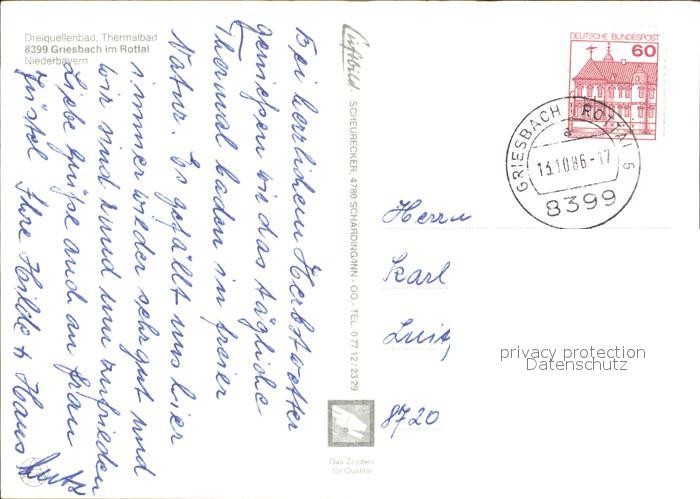 Dreiquellenbad, Thermalbad
8399 Griesbach im Rottal
Niederbayern
Bei herrlichem Herbstwetter
genießen wir das tägliche
Thermal baden in freier
Natur. Es gefällt uns hier
immer wieder sehr gut und
wir sind rund um zufrieden
Liebe Grüße auch an Frau
Ihre Hilde + Hans
Luftbild SCHEURECKER, 4780 SCHÄRDING/INN - OÖ. - TEL. 0 77 12 / 23 29
Das Zeichen
für Qualität
DEUTSCHE BUNDESPOST
60
GRIESBACH I ROTTAL 6
a
13.10.86-17
8399
Herrn
Karl
8720
privacy protection
Datenschutz